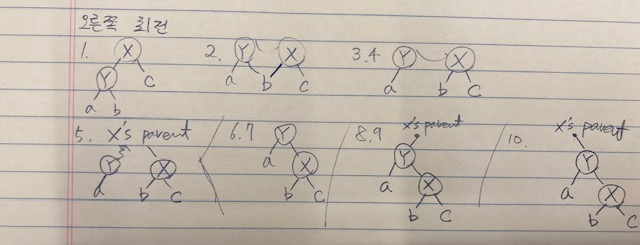 오른쪽 회전
1. X Y C a b
2. Y X a b C
3.4 Y X a b C
5. X's parent Y X a b C
6.7 Y a X b C
8.9 X's parent Y a X b C
10. X's parent Y a X b C